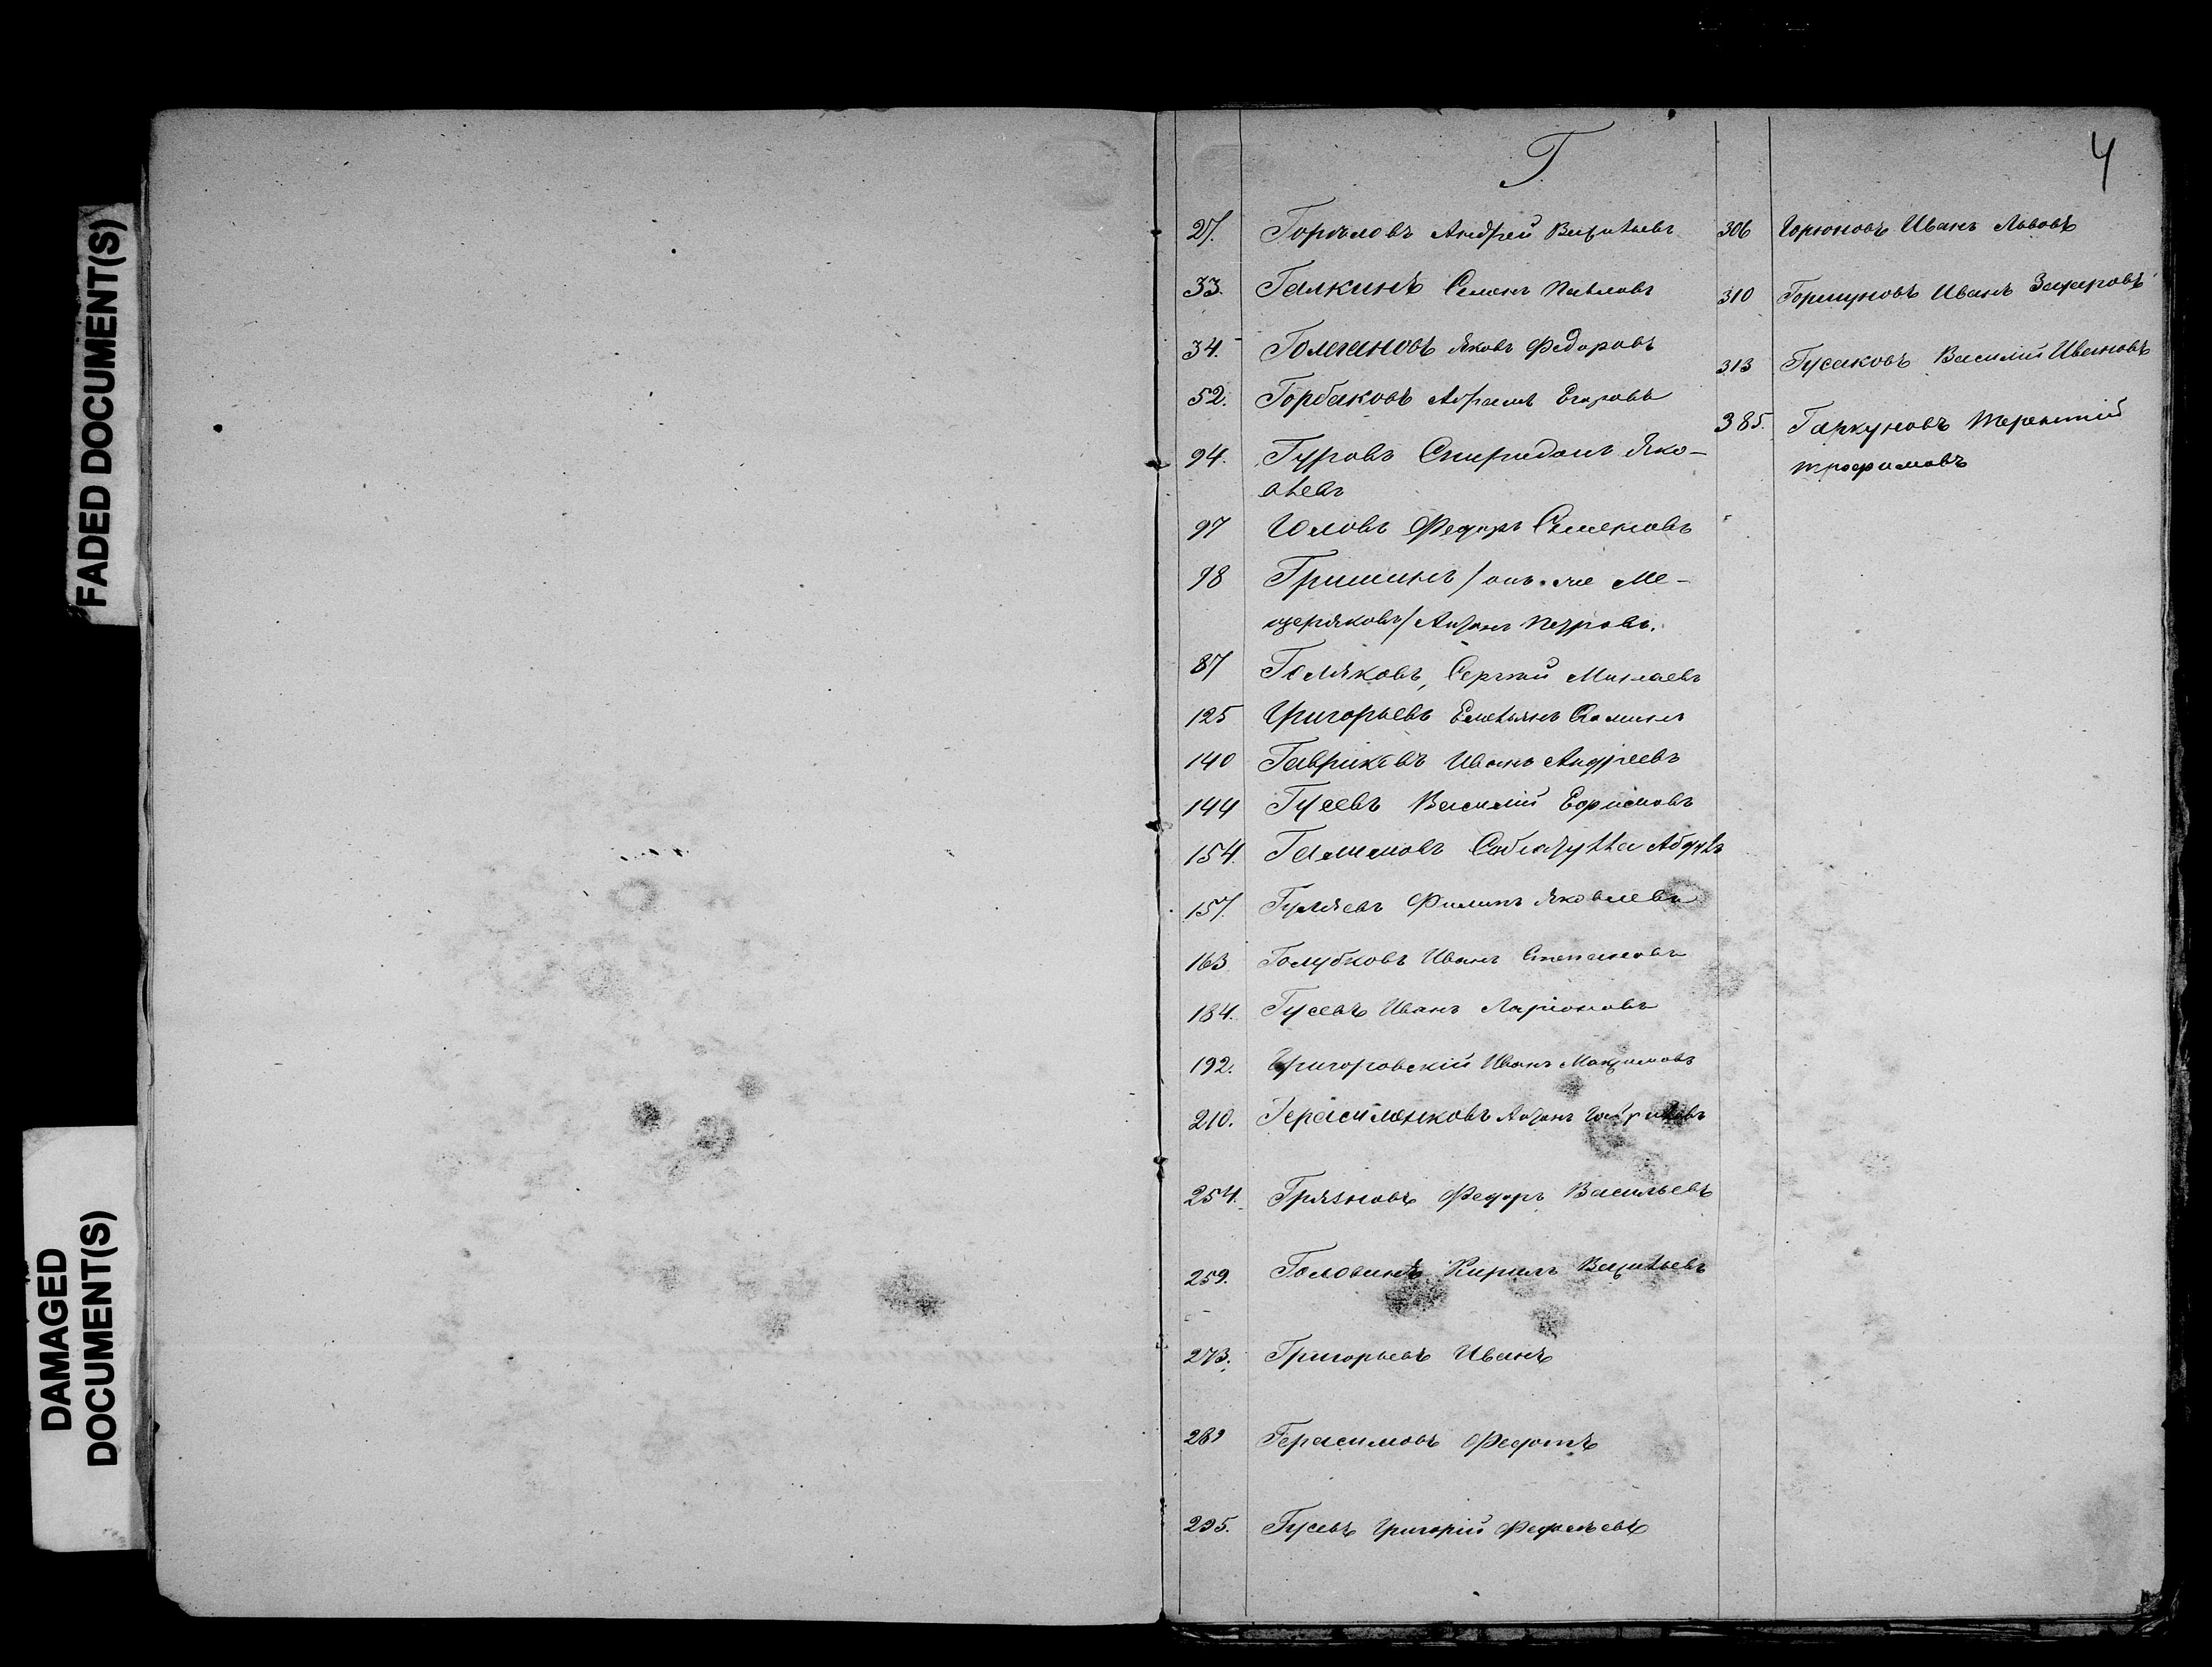 FADED DOCUMENT(S)
DAMAGED
DOCUMENT(S)
Г.
4
27. Горѣловъ Андрей Васильевъ
33. Галкинъ Семенъ Павловъ
34. Яковъ Федоровъ
52. Горбаковъ Абрамъ Егоровъ
94. Гуровъ Спиридонъ Яко-
влевъ
97 Головъ Федоръ Семеновъ
98 Гришинъ / онъ же Ме-
щеряковъ / Антонъ Петровъ.
87 Голяковъ, Сергѣй
125 Григорьевъ Емельянъ
140 Гавриковъ Иванъ Андреевъ
144 Гусевъ Василій Ефимовъ
154. Галимовъ
157. Гуляевъ Филипъ Яковлевъ
163 Голубковъ Иванъ Степановъ
184. Гусевъ Иванъ Ларіоновъ
192. Григоровскій Иванъ Максимовъ
210. Герасименковъ Антонъ Гавриловъ
254. Грязновъ Федоръ Васильевъ
259. Головинъ Кирилъ Васильевъ
273. Григорьевъ Иванъ
289 Герасимовъ Федотъ
295. Гусевъ Григорій
306 Горюновъ Иванъ Львовъ
310 Горшуновъ Иванъ Захаровъ
313 Гусаковъ Василій Ивановъ
385. Гаркуновъ Терентій
Трофимовъ